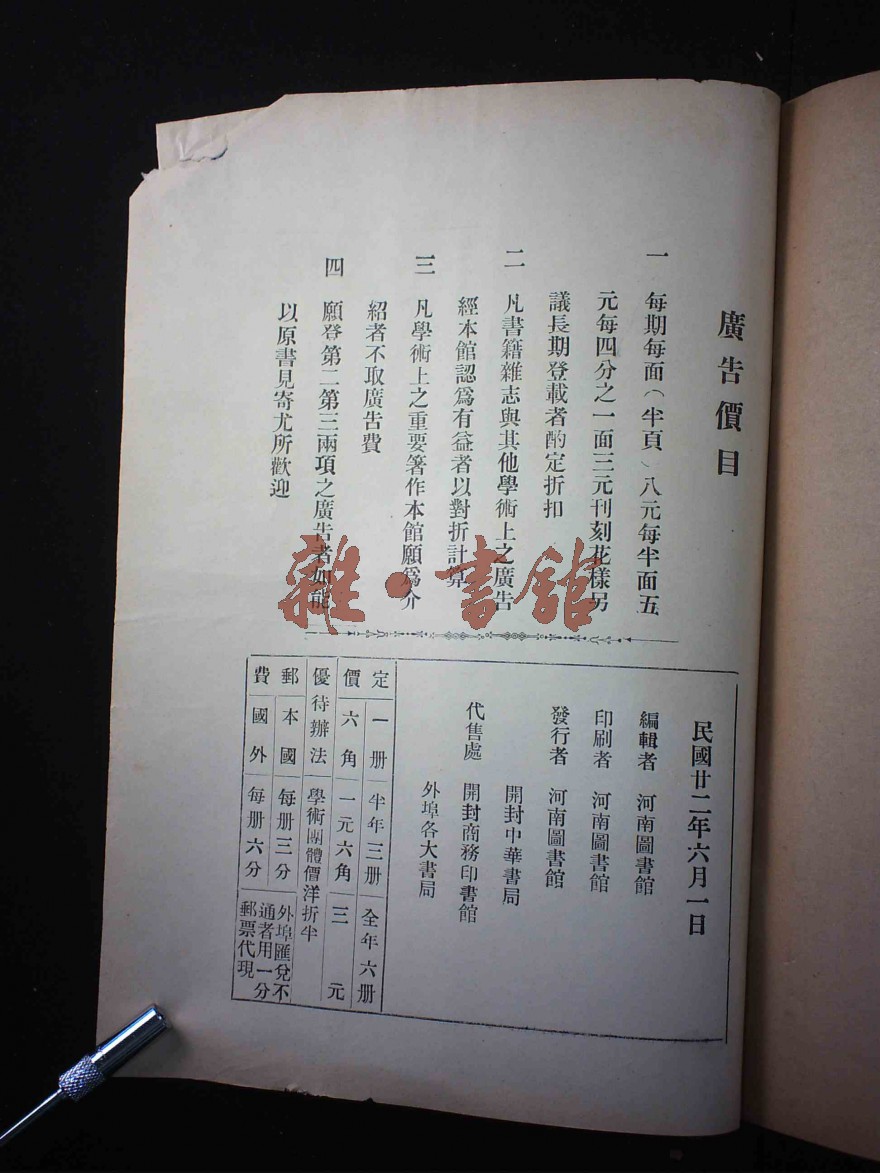 廣告價目
一 每期每面（半頁）八元每半面五
元每四分之一面三元刊刻花樣另
議長期登載者酌定折扣
二 凡書籍雜志與其他學術上之廣告
經本館認爲有益者以對折計算
三 凡學術上之重要箸作本館願爲介
紹者不取廣告費
四 願登第二第三兩項之廣告者如能
以原書見寄尤所歡迎
雜·書館
民國廿二年六月一日
編輯者 河南圖書館
印刷者 河南圖書館
發行者 河南圖書館
開封中華書局
代售處 開封商務印書館
外埠各大書局
定 一册 半年三册 全年六册
價 六角 一元六角 三元
優待辦法 學術團體價洋折半
郵 本國 每册三分
費 國外 每册六分
外埠匯兌不
通者用一分
郵票代現